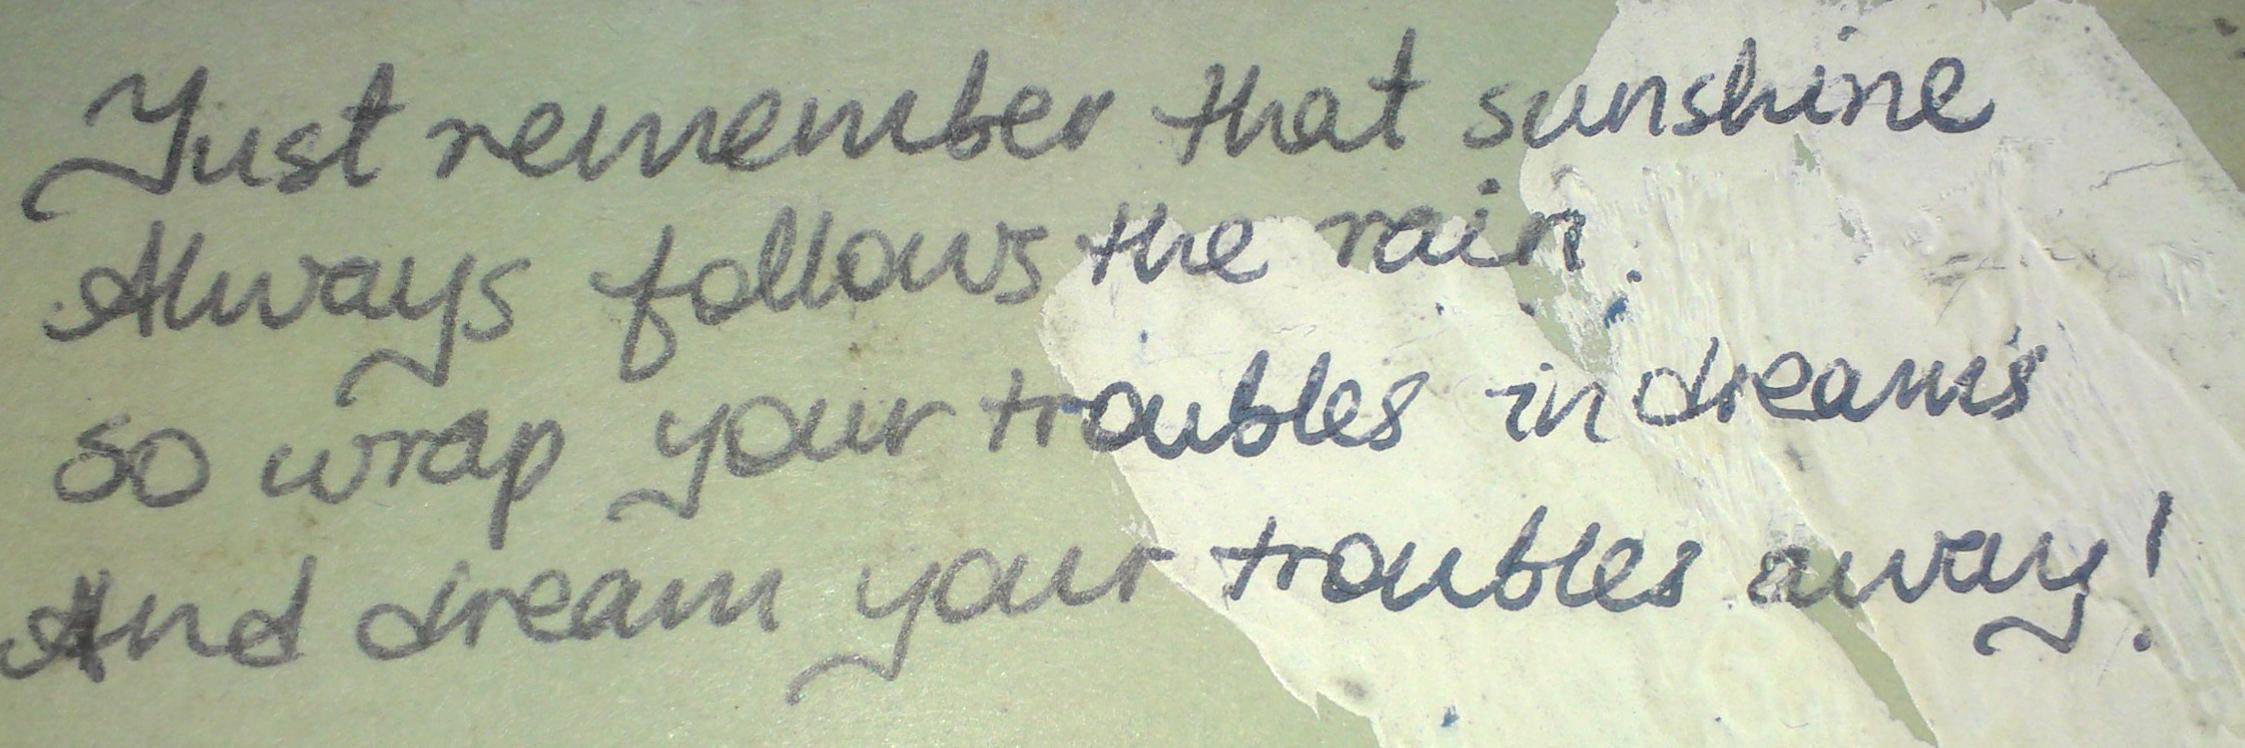 Just remember that sunshine
Always follows the rain.
So wrap your troubles in dreams
And dream your troubles away!